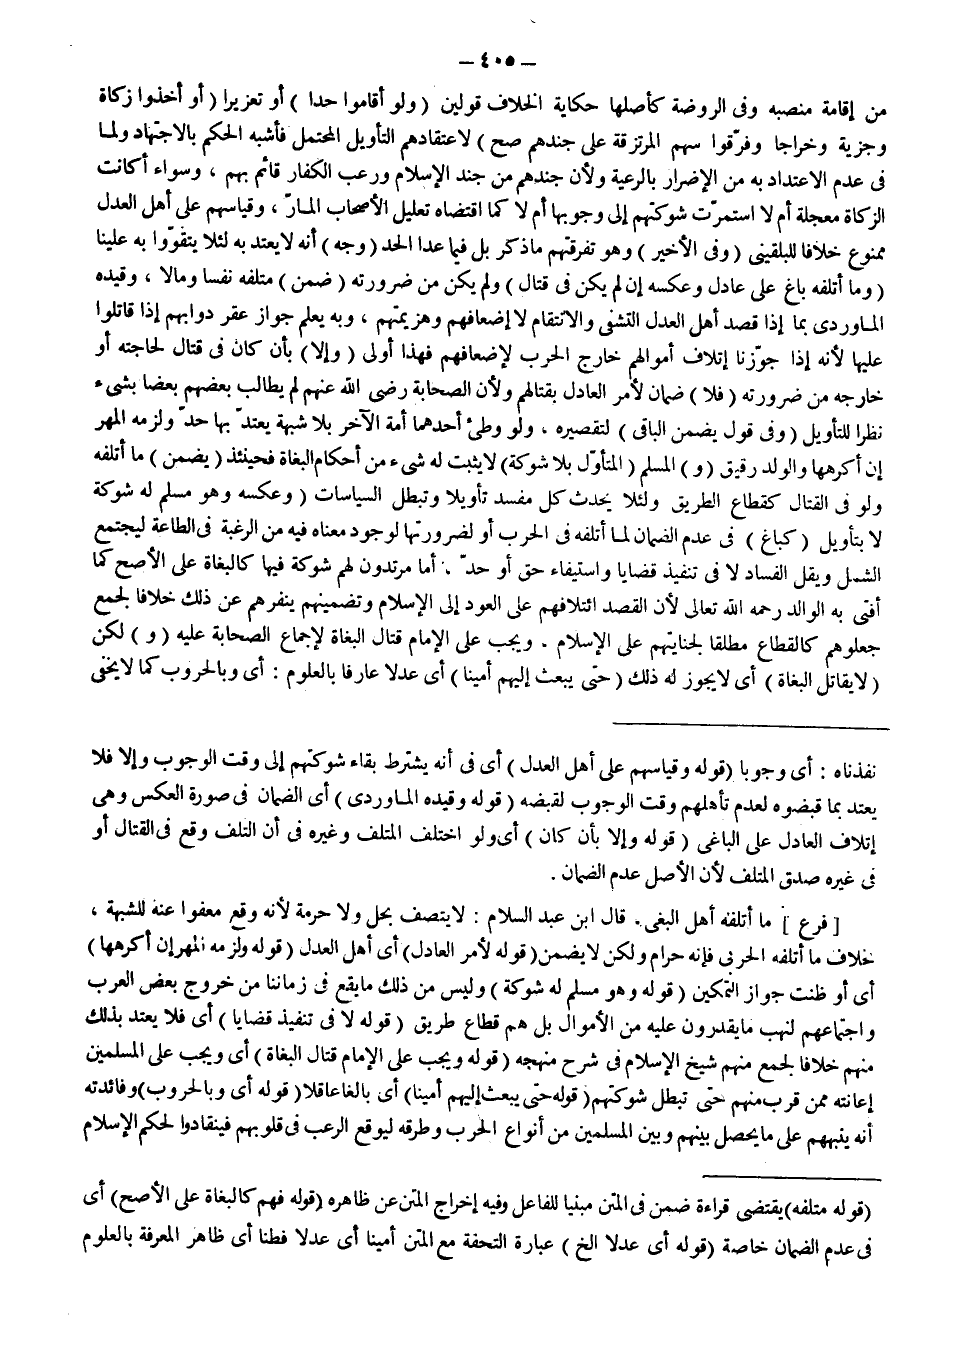 — ٤٠٥ —
من إقامة منصبه وفى الروضة كأصلها حكاية الخلاف قولين ( ولو أقاموا حدا ) أو تعزيرا ( أو أخذوا زكاة
وجزية وخراجا وفرّقوا سهم المرتزقة على جندهم صح ) لاعتقادهم التأويل المحتمل فأشبه الحكم بالاجتهاد ولما
فى عدم الاعتداد به من الإضرار بالرعية ولأن جندهم من جند الإسلام ورعب الكفار قائم بهم ، وسواء أكانت
الزكاة معجلة أم لا استمرّت شوكتهم إلى وجوبها أم لا كما اقتضاه تعليل الأصحاب المارّ ، وقياسهم على أهل العدل
ممنوع خلافا للبلقينى ( وفى الأخير ) وهو تفرقتهم ماذكر بل فيما عدا الحد ( وجه ) أنه لايعتد به لئلا يتقوّوا به علينا
( وما أتلفه باغ على عادل وعكسه إن لم يكن فى قتال ) ولم يكن من ضرورته ( ضمن ) متلفه نفسا ومالا ، وقيده
الماوردى بما إذا قصد أهل العدل التشفى والانتقام لا إضعافهم وهزيمتهم ، وبه يعلم جواز عقر دوابهم إذا قاتلوا
عليها لأنه إذا جوّزنا إتلاف أموالهم خارج الحرب لإضعافهم فهذا أولى ( وإلا ) بأن كان فى قتال لحاجته أو
خارجه من ضرورته ( فلا ) ضمان لأمر العادل بقتالهم ولأن الصحابة رضى الله عنهم لم يطالب بعضهم بعضا بشىء
نظرا للتأويل ( وفى قول يضمن الباقى ) لتقصيره ، ولو وطئ أحدهما أمة الآخر بلا شبهة يعتدّ بها حدّ ولزمه المهر
إن أكرهها والولد رقيق ( و ) المسلم ( المتأوّل بلا شوكة ) لايثبت له شىء من أحكام البغاة فحينئذ ( يضمن ) ما أتلفه
ولو فى القتال كقطاع الطريق ولئلا يحدث كل مفسد تأويلا وتبطل السياسات ( وعكسه وهو مسلم له شوكة
لا بتأويل ( كباغ ) فى عدم الضمان لما أتلفه فى الحرب أو لضرورتها لوجود معناه فيه من الرغبة فى الطاعة ليجتمع
الشمل ويقل الفساد لا فى تنفيذ قضايا واستيفاء حق أو حدّ . أما مرتدون لهم شوكة فيها كالبغاة على الأصح كما
أفتى به الوالد رحمه الله تعالى لأن القصد ائتلافهم على العود إلى الإسلام وتضمينهم ينفرهم عن ذلك خلافا لجمع
جعلوهم كالقطاع مطلقا لجنايتهم على الإسلام . ويجب على الإمام قتال البغاة لإجماع الصحابة عليه ( و ) لكن
( لايقاتل البغاة ) أى لايجوز له ذلك ( حتّى يبعث إليهم أمينا ) أى عدلا عارفا بالعلوم : أى وبالحروب كما لايخفى
نفذناه : أى وجوبا ( قوله وقياسهم على أهل العدل ) أى فى أنه يشترط بقاء شوكتهم إلى وقت الوجوب وإلا فلا
يعتد بما قبضوه لعدم تأهلهم وقت الوجوب لقبضه ( قوله وقيده الماوردى ) أى الضمان فى صورة العكس وهى
إتلاف العادل على الباغى ( قوله وإلا بأن كان ) أى ولو اختلف المتلف وغيره فى أن التلف وقع فى القتال أو
فى غيره صدق المتلف لأن الأصل عدم الضمان .
[ فرع ] ما أتلفه أهل البغى . قال ابن عبد السلام : لايتصف بحل ولا حرمة لأنه وقع معفوا عنه للشبهة ،
خلاف ما أتلفه الحربى فإنه حرام ولكن لايضمن ( قوله لأمر العادل ) أى أهل العدل ( قوله ولزمه المهر إن أكرهها )
أى أو ظنت جواز التمكين ( قوله وهو مسلم له شوكة ) وليس من ذلك مايقع فى زماننا من خروج بعض العرب
واجتماعهم لنهب مايقدرون عليه من الأموال بل هم قطاع طريق ( قوله لا فى تنفيذ قضايا ) أى فلا يعتد بذلك
منهم خلافا لجمع منهم شيخ الإسلام فى شرح منهجه ( قوله ويجب على الإمام قتال البغاة ) أى ويجب على المسلمين
إعانته ممن قرب منهم حتّى تبطل شوكتهم ( قوله حتّى يبعث إليهم أمينا ) أى بالغا عاقلا ( قوله أى وبالحروب ) وفائدته
أنه ينبههم على مايحصل بينهم وبين المسلمين من أنواع الحرب وطرقه ليوقع الرعب فى قلوبهم فينقادوا لحكم الإسلام
( قوله متلفه ) يقتضى قراءة ضمن فى المتن مبنيا للفاعل وفيه إخراج المتن عن ظاهره ( قوله فهم كالبغاة على الأصح ) أى
فى عدم الضمان خاصة ( قوله أى عدلا الخ ) عبارة التحفة مع المتن أمينا أى عدلا فطنا أى ظاهر المعرفة بالعلوم